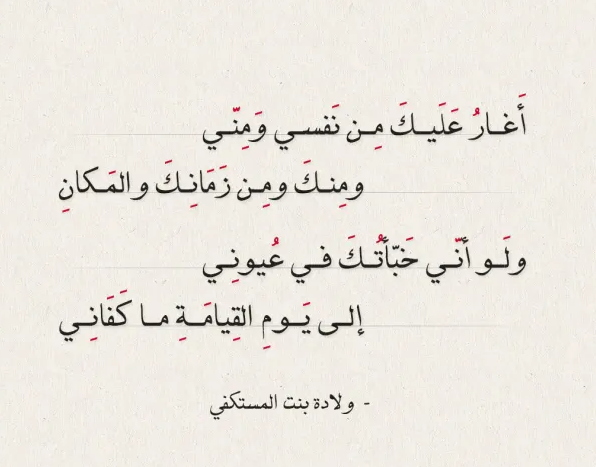 أَغـارُ عَلَيـكَ مِـن نَفسـي وَمِنّـي
ومِنـكَ ومِـن زَمَانِـكَ والمَـكانِ
ولَـو أنّـي خَبّأتُـكَ فـي عُيونِـي
إلـى يَـومِ القِيامَـةِ مـا كَفَانِـي
- ولادة بنت المستكفي